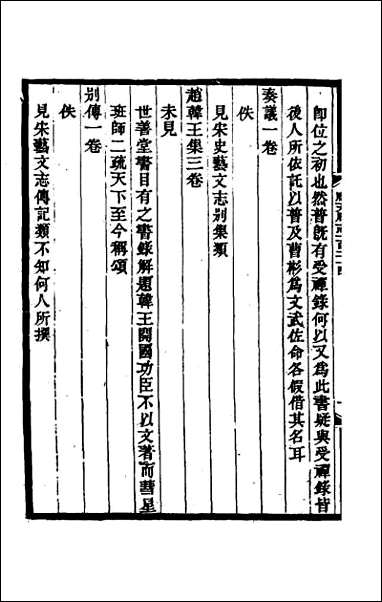 即位之初也然普既有受禪錄何以又爲此書疑與受禪錄皆
後人所依託以普及曹彬爲文武佐命各假借其名耳
奏議一卷
佚
見宋史藝文志别集類
趙韓王集三卷
未見
世善堂書目有之書錄解題韓王開國功臣不以文著而彗星
班師二疏天下至今稱頌
别傳一卷
佚
見宋藝文志傳記類不知何人所撰